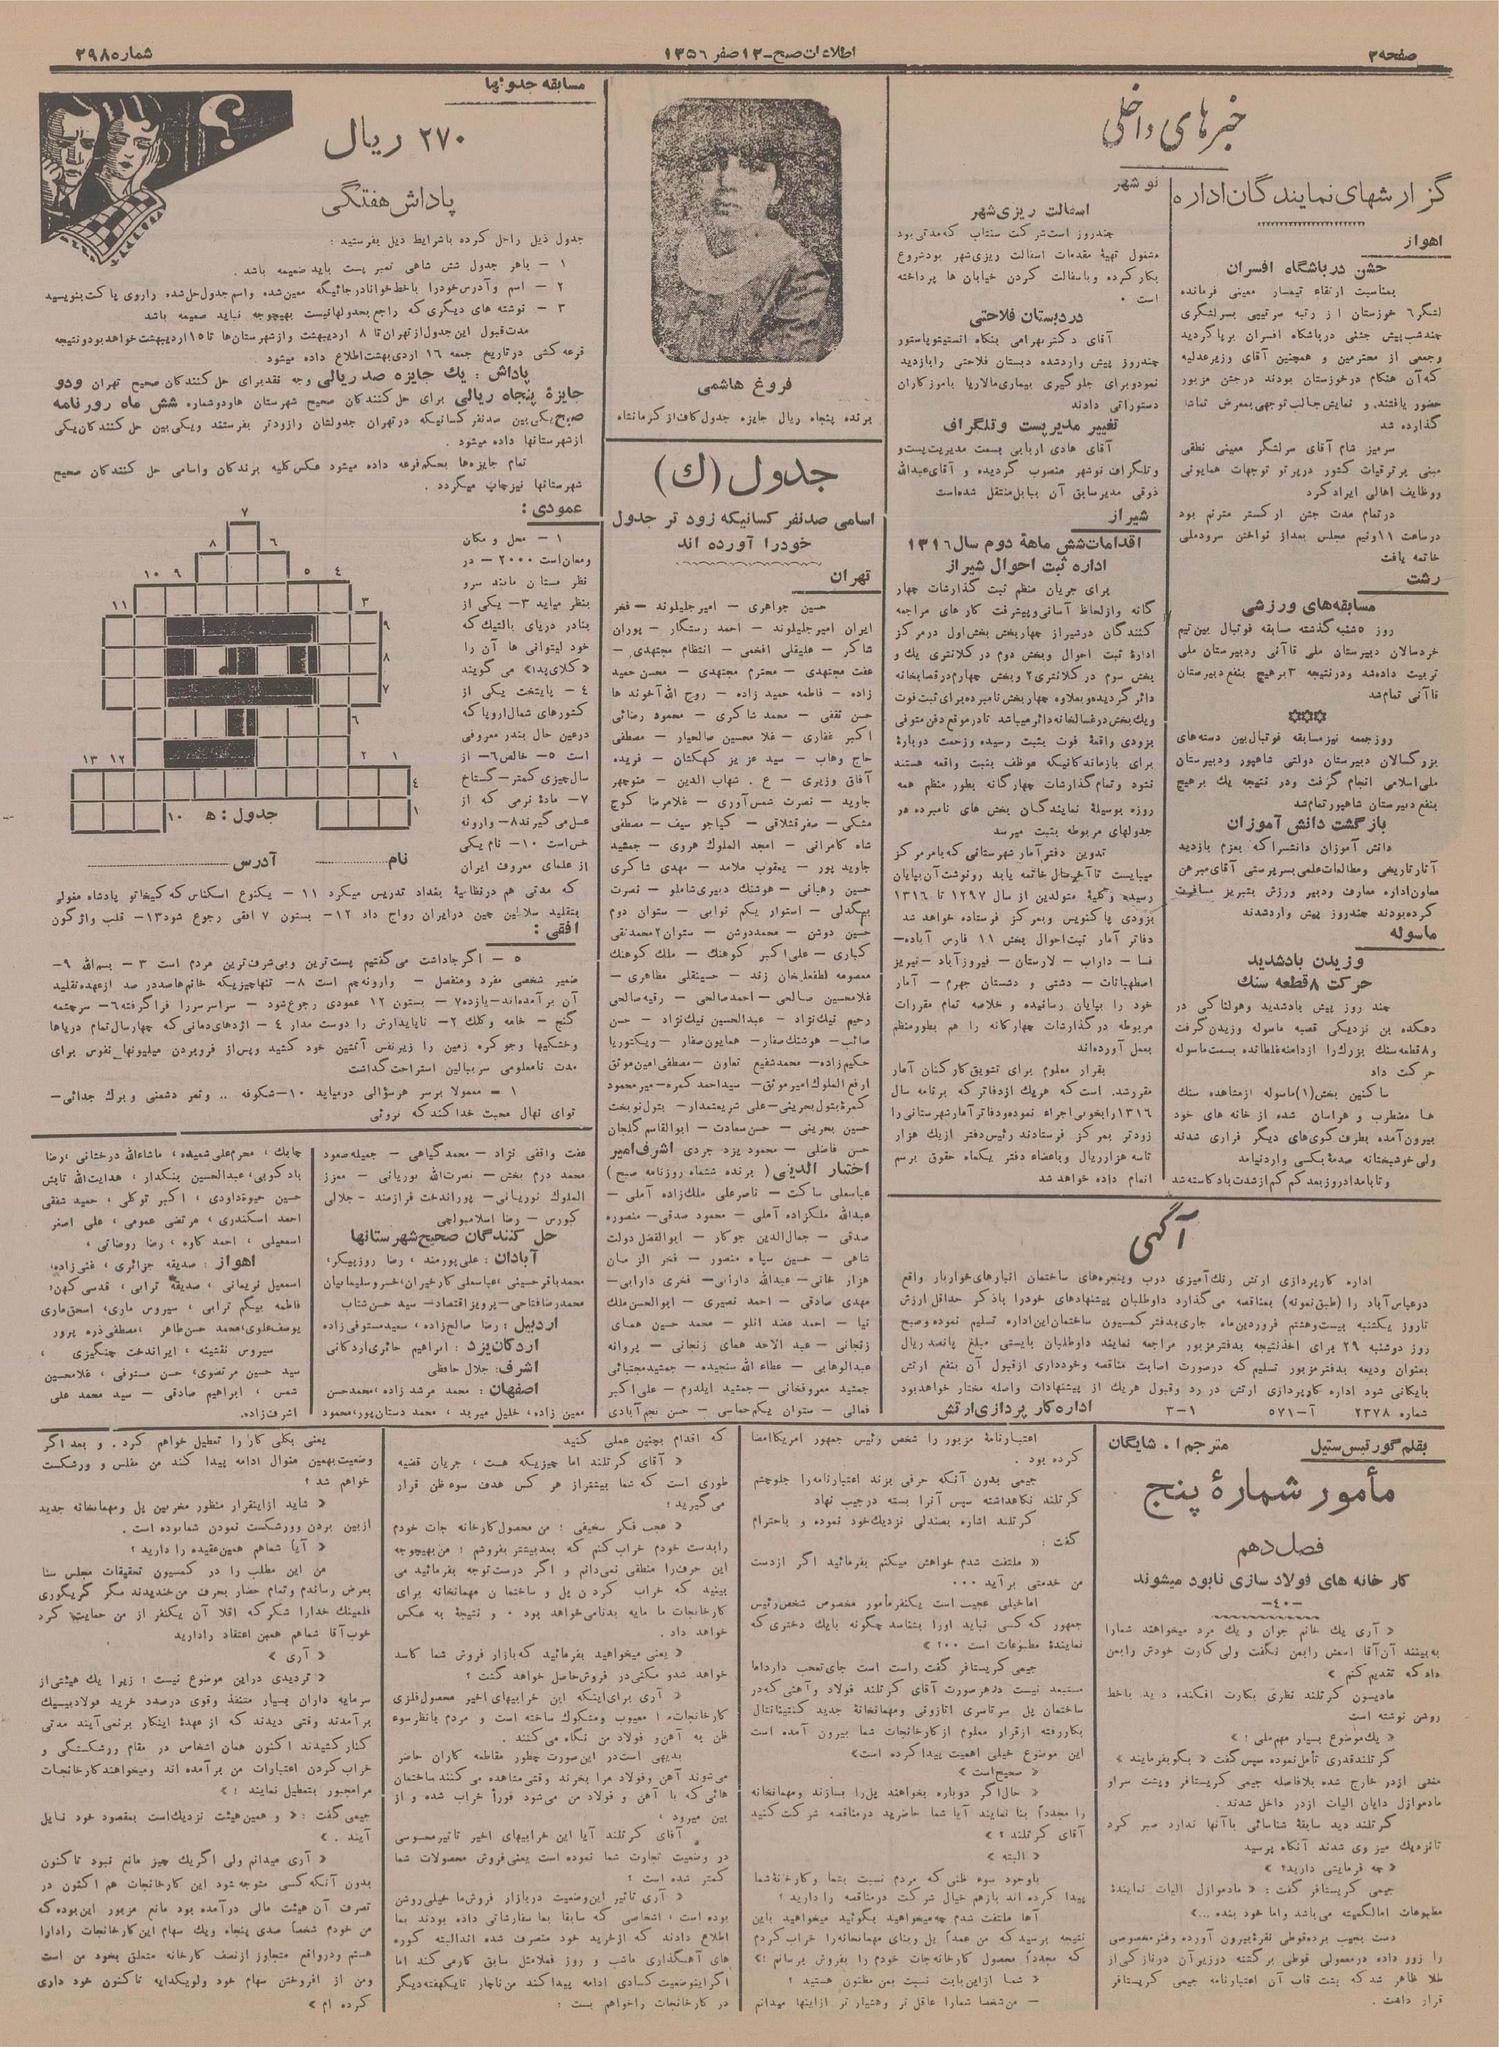 صفحه ۳
اطلاعات صبح - ۱۲ صفر ۱۳۵۶
شماره ۲۹۸۰
خبرهای داخلی
گزارشهای نمایندگان اداره
اهواز
جشن در باشگاه افسران
بمناسبت ارتقاء تیمسار معینی فرمانده
لشگر ۶ خوزستان از رتبه سرتیپی بسرلشگری
چند شب پیش جشنی در باشگاه افسران برپا گردید
وجمعی از محترمین و همچنین آقای وزیر عدلیه
که آن هنگام در خوزستان بودند در جشن مزبور
حضور یافتند و نمایش جالب توجهی بمعرض تماشا
گذارده شد
سر میز شام آقای سرلشگر معینی نطقی
مبنی بر ترقیات کشور در پرتو توجهات همایونی
ووظایف اهالی ایراد کرد
در تمام مدت جشن ارکستر مترنم بود
در ساعت ۱۱ ونیم مجلس بعد از نواختن سرود ملی
خاتمه یافت
رشت
مسابقه های ورزشی
روز ۵ شنبه گذشته مسابقه فوتبال بین تیم
خردسالان دبیرستان ملی قاآنی ودبیرستان ملی
تربیت داده شد ودر نتیجه ۳ بر هیچ بنفع دبیرستان
قاآنی تمام شد
روز جمعه نیز مسابقه فوتبال بین دسته های
بزرگسالان دبیرستان دولتی شاهپور ودبیرستان
ملی اسلامی انجام گرفت ودر نتیجه یك بر هیچ
بنفع دبیرستان شاهپور تمام شد
بازگشت دانش آموزان
دانش آموزان دانشسرا که بعزم بازدید
آثار تاریخی ومطالعات علمی بسرپرستی آقای میرهن
معاون اداره معارف ودبیر ورزش بتبریز مسافرت
کرده بودند چند روز پیش وارد شدند
ماسوله
وزیدن باد شدید
حرکت ۸ قطعه سنك
چند روز پیش باد شدید وهولناکی در
دهکده بن نزدیکی قصبه ماسوله وزیدن گرفت
و۸ قطعه سنك بزرك را از دامنه غلطانده بسمت ماسوله
حرکت داد
ساکنین بخش (۱) ماسوله از مشاهده سنك
ها مضطرب و هراسان شده از خانه های خود
بیرون آمده بطرف کوی های دیگر فراری شدند
ولی خوشبختانه صدمه بکسی وارد نیامد
وتا بامداد روز بعد کم کم از شدت باد کاسته شد
نوشهر
اسفالت ریزی شهر
چند روز است شرکت سنتاب که مدتی بود
مشغول تهیه مقدمات اسفالت ریزی شهر بود شروع
بکار کرده وباسفالت کردن خیابان ها پرداخته
است .
در دبستان فلاحتی
آقای دکتر بهرامی بنگاه انستیتو پاستور
چند روز پیش وارد شده دبستان فلاحتی را بازدید
نمود وبرای جلوگیری بیماری مالاریا بآموزگاران
دستوراتی دادند
تغییر مدیر پست وتلگراف
آقای هادی اربابی بسمت مدیریت پست و
وتلگراف نوشهر منصوب گردیده و آقای عبدالله
ذوقی مدیر سابق آن ببابل منتقل شده است
شیراز
اقدامات شش ماهه دوم سال ۱۳۱۶
اداره ثبت احوال شیراز
برای جریان منظم ثبت گذارشات چهار
گانه وازلحاظ آسانی وپیشرفت کار های مراجعه
کنندگان در شیراز از چهار بخش بخش اول در مرکز
اداره ثبت احوال وبخش دوم در کلانتری یك و
بخش سوم در کلانتری ۲ وبخش چهارم در قصابخانه
دائر گردیده وبعلاوه چهار بخش نامبرده برای ثبت فوت
ویك بخش در غسالخانه دائر میباشد تا در موقع دفن متوفی
بزودی واقعه فوت بثبت رسیده وزحمت دوباره
برای بازماندگانیکه موظف بثبت واقعه هستند
نشود وتمام گذارشات چهار گانه بطور منظم همه
روزه بوسیله نمایندگان بخش های نامبرده در
جدولهای مربوطه بثبت میرسد
تدوین دفتر آمار شهرستانی که بامر مرکز
میبایست تا آخر حال خاتمه یابد رونوشت آن بپایان
رسیده وکلیه متولدین از سال ۱۲۹۷ تا ۱۳۱۶
بزودی پاکنویس وبمرکز فرستاده خواهد شد
دفاتر آمار ثبت احوال بخش ۱۱ فارس آباده -
فسا - داراب - لارستان - فیروزآباد - نیریز
اصطهبانات - دشتی و دشتستان جهرم - آمار
خود را بپایان رسانیده و خلاصه تمام مقررات
مربوطه در گذارشات چهارگانه را هم بطور منظم
بعمل آورده اند
بقرار معلوم برای تشویق کارکنان آمار
مقرر شد. است که هریك از دفاتر که برنامه سال
۱۳۱۶ را بخوبی اجراء نموده ودفاتر آمار شهرستانی را
زودتر بمرکز فرستادند رئیس دفتر از یك هزار
تا سه هزار ریال وباعضاء دفتر یکماه حقوق برسم
انعام داده خواهد شد
آگهی
اداره کارپردازی ارتش رنك آمیزی درب وپنجره های ساختمان انبارهای خواربار واقع
در عباس آباد را (طبق نمونه) بمناقصه می گذارد داوطلبان پیشنهادهای خود را با ذکر حداقل ارزش
تا روز یکشنبه بیست وهشتم فروردین ماه جاری بدفتر کمسیون ساختمان این اداره تسلیم نموده وصبح
روز دوشنبه ۲۹ برای اخذ نتیجه بدفتر مزبور مراجعه نمایند داوطلبان بایستی مبلغ پانصد ریال
بعنوان ودیعه بدفتر مزبور تسلیم که در صورت اصابت مناقصه وخودداری از قبول آن بنفع ارتش
بایگانی شود اداره کارپردازی ارتش در رد وقبول هریك از پیشنهادات واصله مختار خواهد بود
شماره ۲۳۷۸ آ-۵۷۱ ۳-۱ اداره کارپردازی ارتش
فروغ هاشمی
برنده پنجاه ریال جایزه جدول کاف از کرمانشاه
جدول (ك)
اسامی صدنفر کسانیکه زود تر جدول
خود را آورده اند
تهران
حسین جواهری - امیر جلیلوند - فخر
ایران امیر جلیلوند - احمد رستگار - پوران
شاکر - علیقلی افخمی - انتظام مجتهدی -
عفت مجتهدی - محترم مجتهدی - محسن حمید
زاده - فاطمه حمید زاده - روح الله آخوند ها
حسن ثقفی - محمد شاکری - محمود رضائی
اکبر غفاری - غلا محسین صالحیار - مصطفی
حاج وهاب - سید عزیز کهکشان - فریده
آفاق وزیری - ع . شهاب الدین - منوچهر
جاوید - نصرت شمس آوری - غلامرضا کوچ
مشکی - صفر قشلاقی - کیاجو سیف - مصطفی
شاه کامرانی - امجد الملوك هروی - جمشید
جاوید پور - یعقوب ملامد - مهدی شاکری
حسین رهبانی - هوشنك دبیری شاملو - نصرت
بیگدلی - استوار یکم نوابی - ستوان دوم
حسین دوشن - محمد دوشن - ستوان ۲ محمد تقی
کباری - علی اکبر کوهنك - ملك کوهنك
معصومه لطفعلیخان زند - حسینقلی مظاهری -
غلامحسین صالحی - احمد صالحی - رقیه صالحی
رحیم نیك نژاد - عبدالحسین نیك نژاد - حسن
صائب - هوشنك صفار - همایون صفار - ویکتوریا
حکیم زاده - محمد شفیع تعاون - مصطفی امین موثق
ارفع الملوك امیر موثق - سید احمد کمره - میر محمود
کمره بتول بحرینی - علی شریعتمدار - بتول نوبخت
حسین بحرینی - حسن سعادت - ابوالقاسم گلجان
حسن فاضلی - محمود یزد جردی اشرف امیر
اختیار الدینی (برنده ششماه روزنامه صبح)
عباسعلی ساکت - ناصر علی ملك زاده آملی -
عبدالله ملکزاده آملی - محمود صدقی - منصوره
صدقی - جمال الدین جوکار - ابوالفضل دولت
شاهی - حسین سیاه منصور - فخر الزمان
هزار خانی - عبدالله دارابی - فخری دارابی -
مهدی صادقی - احمد نصیری - ابوالحسن ملك
نیا - احمد عضد انلو - محمد حسین همای
زنجانی - عبد الاحد همای زنجانی - پروانه
عبدالوهابی - عطاء الله سنجیده - جمشید مجتبائی
جمشید معروفخانی - جمشید ایلدرم - علی اکبر
فعالی - ستوان یکم حماسی - حسن نجم آبادی
مسابقه جدولها
۲۷۰ ریال
پاداش هفتگی
؟
جدول ذیل را حل کرده با شرایط ذیل بفرستید :
۱ - باهر جدول شش شاهی تمبر پست باید ضمیمه باشد .
۲ - اسم وآدرس خود را با خط خوانا در جائیکه معین شده واسم جدول حل شده را روی پاکت بنویسید
۳ - نوشته های دیگری که راجع بجدولها نیست بهیچوجه نباید ضمیمه باشد
مدت قبول این جدول از تهران تا ۸ اردیبهشت واز شهرستان ها تا ۱۵ اردیبهشت خواهد بود ونتیجه
قرعه کشی در تاریخ جمعه ۱۶ اردیبهشت اطلاع داده میشود .
پاداش : یك جایزه صد ریالی وجه نقد برای حل کنندگان صحیح تهران ودو
جایزه پنجاه ریالی برای حل کنندگان صحیح شهرستان ها ودو شماره شش ماه روزنامه
صبح یکی بین صدنفر کسانیکه در تهران جدولشان را زودتر بفرستند ویکی بین حل کنندگان یکی
از شهرستانها داده میشود .
تمام جایزه ها بحکم قرعه داده میشود عکس کلیه برندگان واسامی حل کنندگان صحیح
شهرستانها نیز چاپ میگردد .
عمودی :
۱ - محل و مکان
ومعان است ۲۰۰۰ - در
نظر مستان مانند سرو
بنظر میاید ۳ - یکی از
بنادر دریای بالتیك که
خود لیتوانی ها آن را
«کلای پدا» می گویند
۴ - پایتخت یکی از
کشورهای شمال اروپا که
در عین حال بندر معروفی
است ۵ - خالص ۶ - از
سال چیزی کمتر - گستاخ
۷ - ماده نرمی که از
عسل می گیرند ۸ - وارونه
خس است ۱۰ - نام یکی
از علمای معروف ایران
که مدتی هم در نظامیه بغداد تدریس میکرد ۱۱ - یکنوع اسکناس که کیخاتو پادشاه مغولی
بتقلید سلاطین چین در ایران رواج داد ۱۲ - بستون ۷ افقی رجوع شود ۱۳ - قلب واژگون
۷
۸ ۶
۱۰ ۹ ۵ ۴
۱۱ ۳
۹
۸
۷
۶
۱۳ ۱۲ ۲ ۱
۴
۱
۱۰ جدول : ه
نام آدرس
افقی :
۵ - اگر جاداشت می گفتیم پست ترین وبی شرف ترین مردم است ۳ - بسم الله ۹ -
ضمیر شخصی مفرد ومنفصل - وارونه جم است ۸ - تنها چیزیکه خانم ها صددر صد از عهده تقلید
آن برآمده اند - یازده ۷ - بستون ۱۲ عمودی رجوع شود - سراسر سررا فرا گرفته ۶ - سرچشمه
گنج - خامه وکلك ۲ - ناپایدارش را دوست مدار ۴ - اژدهای دمانی که چهار سال تمام دریاها
وخشکیها وجو کره زمین را زیر نفس آتشین خود کشید وپس از فرو بردن میلیونها نفوس برای
مدت نامعلومی سر ببالین استراحت گذاشت
۱ - معمولا بر سر هر سؤالی درمیاید ۱۰ - شکوفه .. وثمر دشمنی وبرك جدائی -
توای نهال محبت خدا کند که نروئی
عفت واقفی نژاد - محمد گیاهی - جمیله صعود
محمد درم بخش - نصرت الله نوریانی - معزز
الملوك نوریانی - پوراندخت فرازمند - جلالی
کبورس - رضا اسلامبولچی
حل کنندگان صحیح شهرستانها
آبادان : علی پورمند ، رضا روزپیکر،
محمد باقر حسینی ، عباسعلی کارخیران ، خسرو سلیمانیان
محمد رضا فتاحی - پرویز اقتصاد - سید حسن شتاب
اردبیل : رضا صالح زاده ، سعید مستوفی زاده
اردکان یزد : ابراهیم حائری اردکانی
اشرف : جلال حافظی
اصفهان : محمد مرشد زاده ، محمد حسن
معین زاده ، خلیل میربد ، محمد دستان پور ، محمود
چابك ، محرم علی شمیده ، ماشاءالله درختانی ، رضا
بادکوبی ، عبدالحسین بنکدار ، هدایت الله تابش
حسین حیوة داودی ، اکبر توکلی ، حمید شفقی
احمد اسکندری ، مرتضی عمومی ، علی اصغر
اسمعیلی ، احمد کاوه ، رضا روضاتی ،
اهواز : صدیقه جزائری ، غنی زاده ،
اسمعیل نریمانی ، صدیقه ترابی ، قدسی کهن ،
فاطمه بیگم ترابی ، سیروس ماری ، اسحق ماری
یوسف علوی ، محمد حسن طاهر ، مصطفی ذره پرور
سیروس نقتینه ، ایراندخت چنگیزی ،
سید حسین مرتضوی ، حسن مستوفی ، غلامحسین
شمس ، ابراهیم صادقی - سید محمد علی
اشرف زاده .
بقلم گورتیس ستیل
مترجم ا. شایگان
مأمور شماره پنج
فصل دهم
کارخانه های فولاد سازی نابود میشوند
-۴۰-
« آری یك خانم جوان و یك مرد میخواهند شما را
به بینند آن آقا اسمش را بمن نگفت ولی کارت خودش را بمن
داد که تقدیم کنم »
مادیسون کرتلند نظری بکارت افکنده دید با خط
روشن نوشته است
« یك موضوع بسیار مهم ملی ! »
کرتلند قدری تأمل نموده سپس گفت « بگو بفرمایند »
منشی از در خارج شده بلافاصله جیمی کریستافر وپشت سر او
مادموازل دایان الیات از در داخل شدند .
کرتلند دید سابقه شناسائی با آنها ندارد صبر کرد
تا نزدیك میز وی شدند آنگاه پرسید
« چه فرمایشی دارید ؟ »
جیمی کریستافر گفت : « مادموازل الیات نماینده
مطبوعات امالگمیته می باشد واما خود بنده ...»
دست بجیب برده قوطی نقره بیرون آورده وفنر مخصوصی
را زور داده در معمولی قوطی برگشته در زیر آن در نازکی از
طلا ظاهر شد که پشت قاب آن اعتبارنامه جیمی کریستافر
قرار داشت .
اعتبارنامه مزبور را شخص رئیس جمهور امریکا امضا
کرده بود .
جیمی بدون آنکه حرفی بزند اعتبارنامه را جلو چشم
کرتلند نگاهداشته سپس آنرا بسته در جیب نهاد
کرتلند اشاره بصندلی نزدیك خود نموده و با احترام
گفت :
« ملتفت شدم خواهش میکنم بفرمائید اگر از دست
من خدمتی برآید ...
اما خیلی عجیب است یکنفر مأمور مخصوص شخص رئیس
جمهور که کسی نباید اورا بشناسد چگونه با یك دختری که
نماینده مطبوعات است ..؟ »
جیمی کریستافر گفت راست است جای تعجب دارد اما
مستبعد نیست در هر صورت آقای کرتلند فولاد وآهنی که در
ساختمان پل سرتاسری اتازونی ومهمانخانه جدید کنتیننتال
بکار رفته از قرار معلوم از کارخانجات شما بیرون آمده است
این موضوع خیلی اهمیت پیدا کرده است»
« صحیح است »
« حال اگر دوباره بخواهند پل را بسازند ومهمانخانه
را مجدداً بنا نمایند آیا شما حاضرید در مناقصه شرکت کنید
آقای کرتلند ؟ »
« البته »
با وجود سوء ظنی که مردم نسبت بشما وکارخانه شما
پیدا کرده اند بازهم خیال شرکت در مناقصه را دارید ؟
آها ملتفت شدم چه میخواهید بگوئید میخواهید باین
نتیجه برسید که من عمداً پل وبنای مهمانخانه را خراب کردم
که مجدداً محصول کارخانه جات خودم را بفروش برسانم ؟»
« شما از این بابت نسبت بمن مظنون هستید ؟
- من شخصا شمارا عاقل تر وهشیار تر از اینها میدانم
که اقدام بچنین عملی کنید
« آقای کرتلند اما چیزیکه هست ، جریان قضیه
طوری است که شما بیشتر از هر کس هدف سوء ظن قرار
می گیرید !
« عجب فکر سخیفی ؛ من محصول کارخانه جات خودم
را بدست خودم خراب کنم که بعد بیشتر بفروشم ! من بهیچوجه
این حرف را منطقی نمی دانم و اگر درست توجه بفرمائید می
بینید که خراب کردن پل و ساختمان مهمانخانه برای
کارخانجات ما مایه بدنامی خواهد بود . و نتیجه به عکس
خواهد داد .
« یعنی میخواهید بفرمائید که بازار فروش شما کاسد
خواهد شد و مکثی در فروش حاصل خواهد گشت ؟
« آری برای اینکه این خرابیهای اخیر محصول فلزی
کارخانجات ما را معیوب ومشکوك ساخته است و مردم با نظر سوء
ظن به آهن و فولاد من نگاه می کنند .
بدیهی است در این صورت چطور مقاطعه کاران حاضر
می شوند آهن وفولاد مرا بخرند وقتی مشاهده می کنند ساختمان
هائی که با آهن و فولاد من می شود فوراً خراب شده و از
بین میرود ؛
آقای کرتلند آیا این خرابیهای اخیر تاثیر محسوسی
در وضعیت تجارت شما نموده است یعنی فروش محصولات شما
کمتر شده است ؟
« آری تاثیر این وضعیت در بازار فروش ما خیلی روشن
بوده است ؛ اشخاصی که سابقا بما سفارشاتی داده بودند بما
اطلاع دادند که از خرید خود متصرف شده اند البته کوره
های آهنگدازی ماشب و روز فعلا مثل سابق کار می کند اما
اگر این وضعیت کسادی ادامه پیدا کند من ناچار تا یکهفته دیگر
در کارخانجات را خواهم بست :
یعنی بکلی کار را تعطیل خواهم کرد . و بعد اگر
وضعیت بهمین منوال ادامه پیدا کند من مفلس و ورشکست
خواهم شد ؟
« شاید از اینقرار منظور مخربین پل ومهمانخانه جدید
از بین بردن وورشکست نمودن شما بوده است .
« آیا شما هم همین عقیده را دارید ؟
من این مطلب را در کمسیون تحقیقات مجلس سنا
بعرض رساندم وتمام حضار بحرف من خندیدند مگر گریگوری
فلمینك خدا را شکر که اقلا آن یکنفر از من حمایت کرد
خوب آقا شما هم همین اعتقاد را دارید
« آری »
« تردیدی در این موضوع نیست ؛ زیرا یك هیئتی از
سرمایه داران بسیار متنفذ وقوی درصدد خرید فولاد بیسیك
برآمدند وقتی دیدند که از عهده اینکار برنمی آیند مدتی
کنار کشیدند اکنون همان اشخاص در مقام ورشکستگی و
خراب کردن اعتبارات من برآمده اند ومیخواهند کارخانجات
مرا مجبور بتعطیل نمایند ! »
جیمی گفت : « و همین هیئت نزدیك است بمقصود خود نایل
آیند . »
« آری میدانم ولی اگر یك چیز مانع نبود تا کنون
بدون آنکه کسی متوجه شود این کارخانجات هم اکنون در
تصرف آن هیئت مالی درآمده بود مانع مزبور این بوده که
من خودم شخصاً صدی پنجاه ویك سهام این کارخانجات را دارا
هستم ودر واقع متجاوز از نصف کارخانه متعلق بخود من است
ومن از افروختن سهام خود ولو یکدانه تا کنون خود داری
کرده ام »